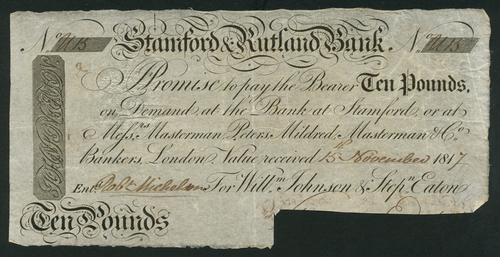 No Stamford & Rutland Bank. No
I Promise to pay the Bearer Ten Pounds.
on Demand at the Bank at Stamford or at
Messrs Masterman Peters Mildred, Masterman & Co
Bankers, London Value received 15 November 1817
Entd For Willm Johnson & Stepn Eaton
Ten Pounds